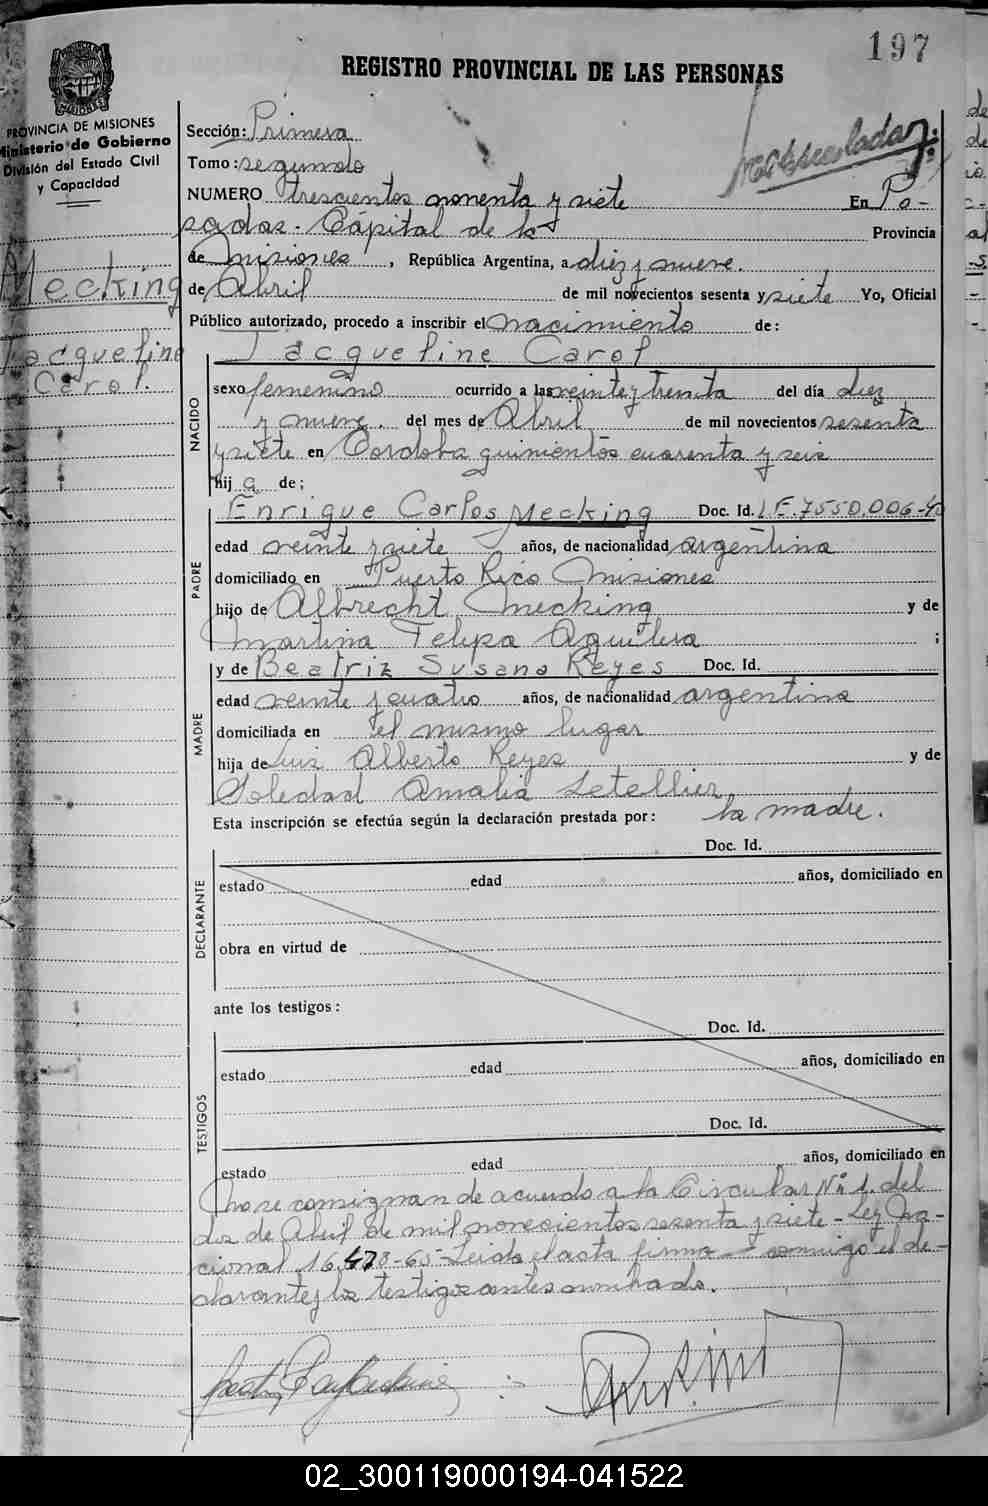 197
REGISTRO PROVINCIAL DE LAS PERSONAS
PROVINCIA DE MISIONES
Ministerio de Gobierno
División del Estado Civil
y Capacidad
Mecking
Jacqueline
Carol.
Sección: Primera
Tomo: segundo
NUMERO trescientos noventa y siete En Po-
sadas. Cápital de la Provincia
de Misiones, República Argentina, a diez y nueve.
de Abril de mil novecientos sesenta y siete Yo, Oficial
Público autorizado, procedo a inscribir el nacimiento de:
Jacqueline Carol
NACIDO
sexo femenino ocurrido a las veinte y treinta del día diez
y nueve. del mes de Abril de mil novecientos sesenta
y siete en Cordoba quinientos cuarenta y seis
hij a de;
PADRE
Enrique Carlos Mecking Doc. Id. L.E. 7.550.006-
edad veinte y siete años, de nacionalidad argentina
domiciliado en Puerto Rico Misiones
hijo de Albrecht Mecking y de
Martina Felipa Aguilera ;
MADRE
y de Beatriz Susana Reyes Doc. Id.
edad veinte y cuatro años, de nacionalidad argentina
domiciliada en el mismo lugar
hija de Luis Alberto Reyes y de
Soledad Amalia Letellier
Esta inscripción se efectúa según la declaración prestada por: la madre.
DECLARANTE
Doc. Id.
estado edad años, domiciliado en
obra en virtud de
ante los testigos:
TESTIGOS
Doc. Id.
estado edad años, domiciliado en
Doc. Id.
estado edad años, domiciliado en
no se consignan de acuerdo a la Circular Nº 1. del
dos de Abril de mil novecientos sesenta y siete - Ley Na-
cional 16.478-65- Leida el acta firma conmigo el de-
clarante y los testigos antes nombrado.
02_300119000194-041522